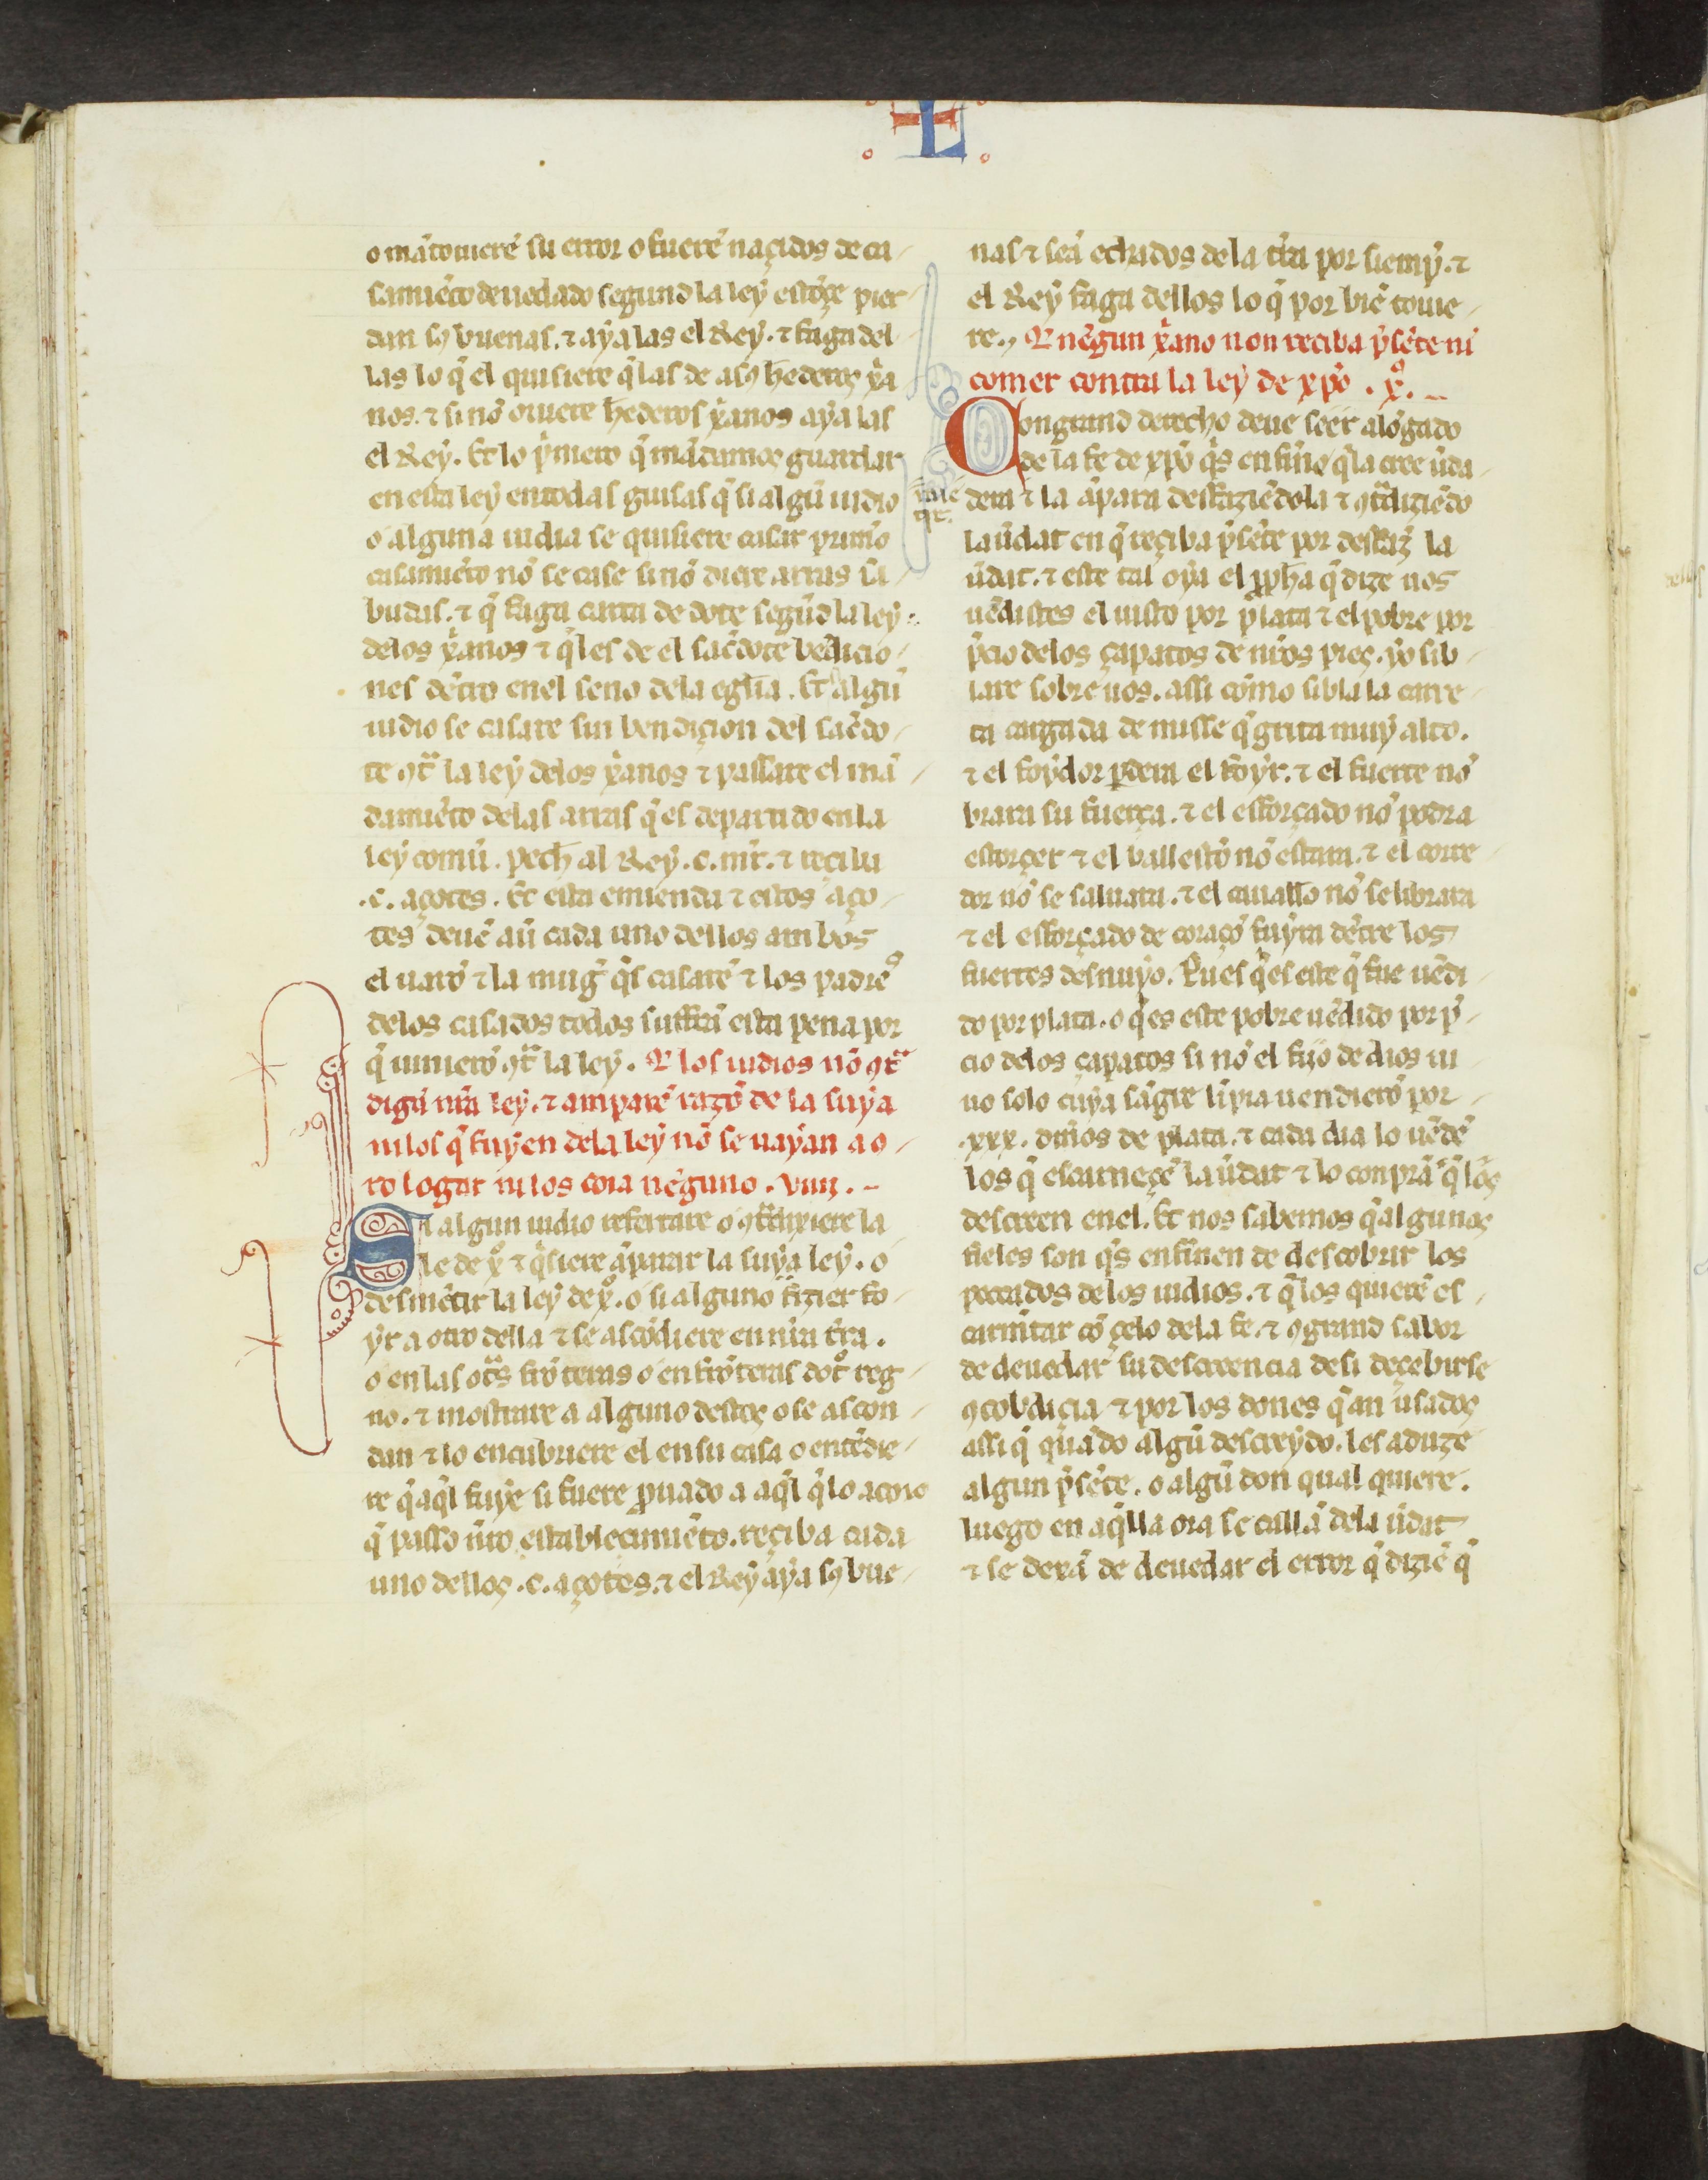 L
o mãtouierẽ su error o fuerẽ naçidos de ca
samiẽto deuedado segund la ley estõçe pier
dan sꝯ buenas. ⁊ aya las el Rey. ⁊ faga del
las lo q̃ el quisiere q̃ las de a sꝯ hederos x̃a
nos. ⁊ si nõ ouiere hederos x̃anos aya las
el Rey. Et lo p̃mero q̃ mãdamos guardar
en esta ley en todas guisas q̃ si algũ iudio
o alguna iudia se quisiere casar primo
casamiẽto nõ se case si nõ diere arras sa
budas. ⁊ q̃ faga carta de dote segũd la ley
delos x̃anos ⁊ q̃ les de el sac̃dote bẽdicio
nes dẽtro enel seno dela eglĩa. Et si algũ
iudio se casare sin bendiçion del sac̃do
te ꝯtͣ la ley delos x̃anos ⁊ passare el mã
damiẽto delas arras q̃ es departido en la
ley comũ. pech al Rey .c. mr̃. ⁊ reçiba
.c. açotes. Et esta emienda ⁊ estos aço
tes deuẽ auer cada uno dellos ambos
el uarõ ⁊ la mug̃ q̃ s̃ casarẽ ⁊ los padreꝰ
delos casados todos suffrã esta pena por
q̃ uinierõ ꝯtͣ la ley. Q los iudios nõ ꝯtͣ
digã nr̃a ley. ⁊ amparẽ razõ de la suya
ni los q̃ fuyen dela ley nõ se uayan a o
ro logar ni los coia nẽguno. viiij.
Si algun iudio refertare o ꝯtͣdixiere la
fe de xꝰ ⁊ q̃siere ãparar la suya ley. o
desmẽtir la ley de xꝰ. o si alguno fizier fo
yr a otro della ⁊ se ascõdiere en nr̃a tr̃ra.
o en las otͣs frõteras o en frõteras dotͦ reg
no. ⁊ mostrare a alguno destos o se ascon
dan ⁊ lo encubriere el en su casa o entẽdie
re q̃ aq̃l fuye si fuere prouado a aq̃l q̃ lo acoio
q̃ passo nr̃o establecimiẽto. reçiba cada
uno dellos .c. açotes. ⁊ el Rey aya sꝯ bue
nas ⁊ seã echados de la tr̃ra por siemp̃. ⁊
el Rey faga dellos lo q̃ por biẽ touie
re. Q nẽgun x̃ano non reciba p̃sẽte ni
comer contra la ley de xp̃o .xͦ.
Con grand derecho deue seer alõgado
de la fe de xp̃o q̃ s̃ enfĩne q̃ la cree ũda
dera ⁊ la ãpara desfaziẽdola ⁊ ꝯtͣdiziẽdo
la ũdat en q̃ reçiba p̃sẽte por desfaz̃ la
ũdat. ⁊ este tal oya el pph̃a q̃ dize uos
uẽdistes el iusto por plata ⁊ el pobre por
p̃cio delos çapatos de nr̃os pies. yo sib
lare sobre uos. assi cõmo sibla la carre
ta cargada de miesse q̃ grita muy alto.
⁊ el foydor ꝑdera el foyr. ⁊ el fuerte nõ
brara su fuerça. ⁊ el esforçado nõ podra
estorçer ⁊ el ballestõ nõ estara. ⁊ el corre
dor nõ se saluara. ⁊ el cauallo nõ se librara
⁊ el esforçado de coraçõ fuyra dẽtre los
fuertes desnuyo. Pues q̃ es este q̃ fue uẽdi
do por plata. o q̃ es este pobre uẽdido por p̃
cio delos çapatos si nõ el fijo de dios ui
uo solo cuya sãgre lĩpia uendierõ por
.xxx. dĩnos de plata. ⁊ cada dia lo uẽdẽ
los q̃ escarneçẽ la ũdat ⁊ lo conprã q̃ los
descreen en el. Et nos sabemos q̃ algunos
fieles son q̃ s̃ enfĩnen de descobrir los
peccados delos iudios. ⁊ q̃ los quierẽ es
carmẽtar cõ çelo dela fe. ⁊ ꝯ grand sabor
de deuedar su descreencia de si deçebirse
ꝯ cobdiçia ⁊ por los dones q̃ an usados
assi q̃ quãdo algũ descreydo. les aduze
algun p̃sẽte. o algũ don qual quiere.
luego en aq̃lla ora se callã dela ũdat
⁊ se dexã de deuedar el error q̃ diziẽ q̃